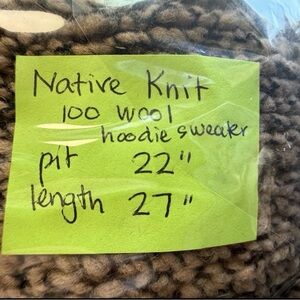 Native Knit
100 wool
hoodie sweater
pit 22"
length 27"